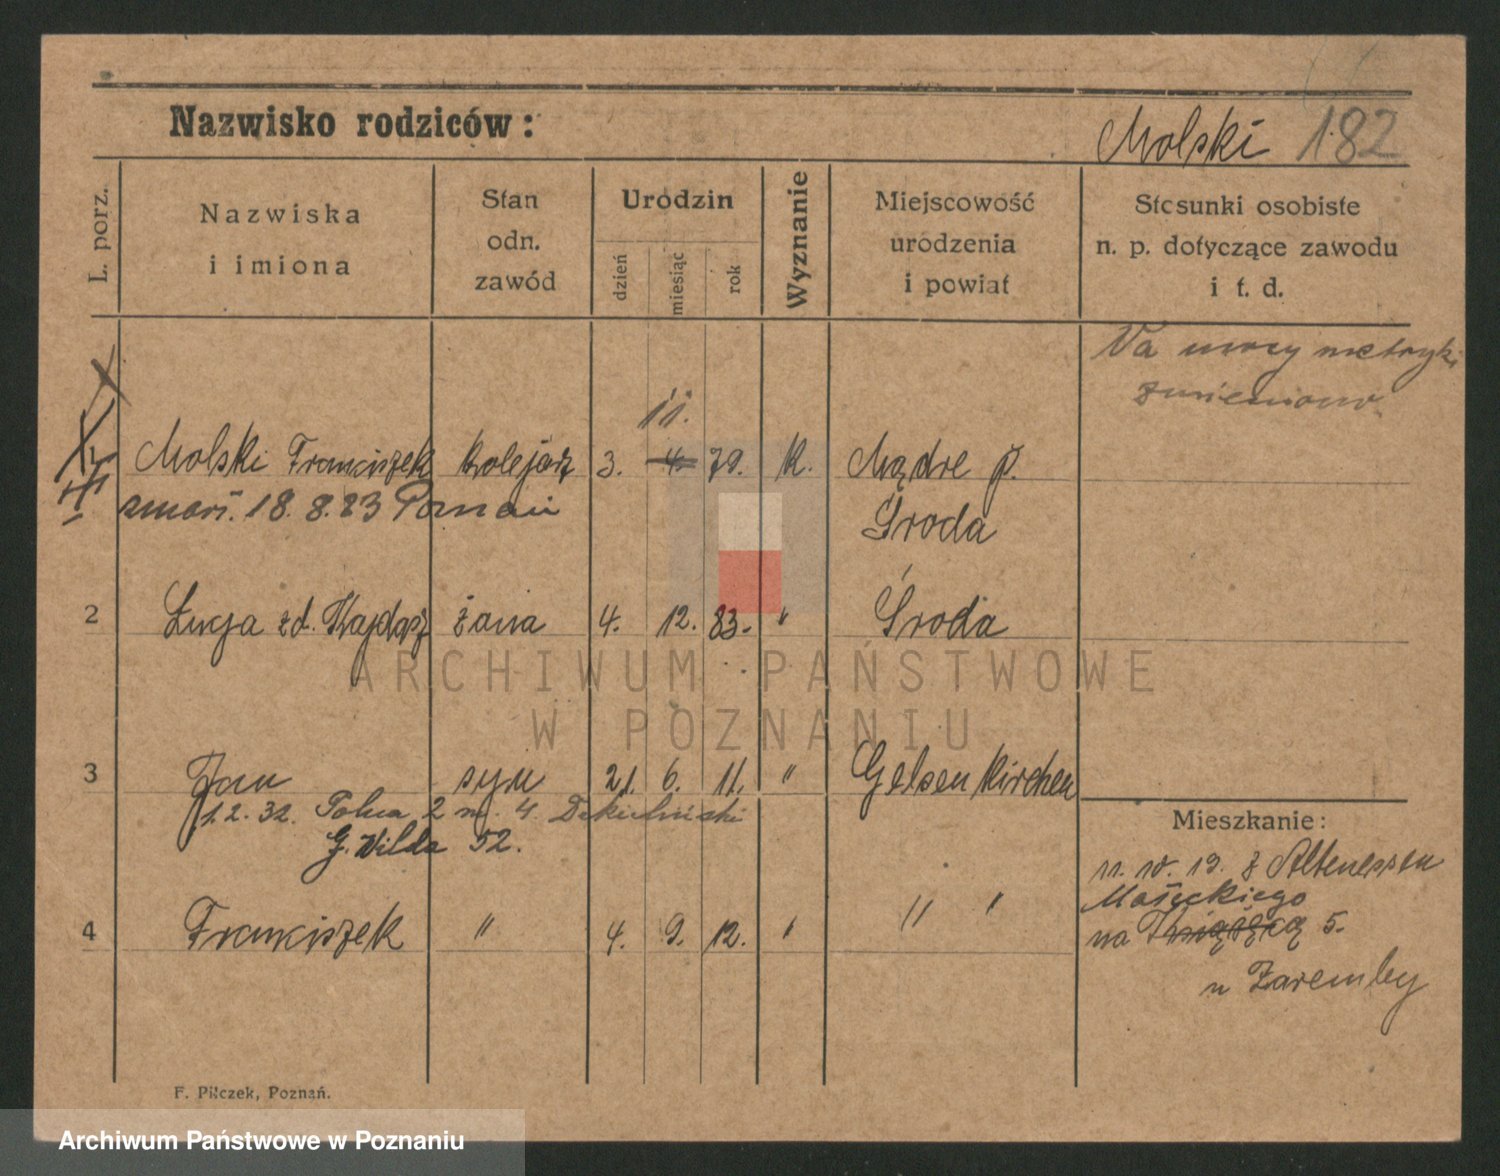 Nazwisko rodziców:
Molski 182
L. porz.
Nazwiska
i imiona
Stan
odn.
zawód
Urodzin
dzień
miesiąc
rok
Wyznanie
Miejscowość
urodzenia
i powiat
Stosunki osobiste
n. p. dotyczące zawodu
i t. d.
Na mocy metryki
zmieniono.
11.
Molski Franciszek kolejarz 3. 4. 79. K. Mądre p.
zmarł. 18. 8. 23 Poznań
Środa
2 Łucja zd. Kajdasz żona 4. 12. 83. " Środa
ARCHIWUM PAŃSTWOWE
W POZNANIU
3 Jan syn 21. 6. 11. " Gelsenkirchen
1.2.32. Polna 2 m. 4
G. Wilda 52.
Mieszkanie:
11. 10. 19. z Altenessen
Małeckiego
na 5.
u Zaremby
4 Franciszek " 4. 9. 12. " " "
F. Pilczek, Poznań.
Archiwum Państwowe w Poznaniu